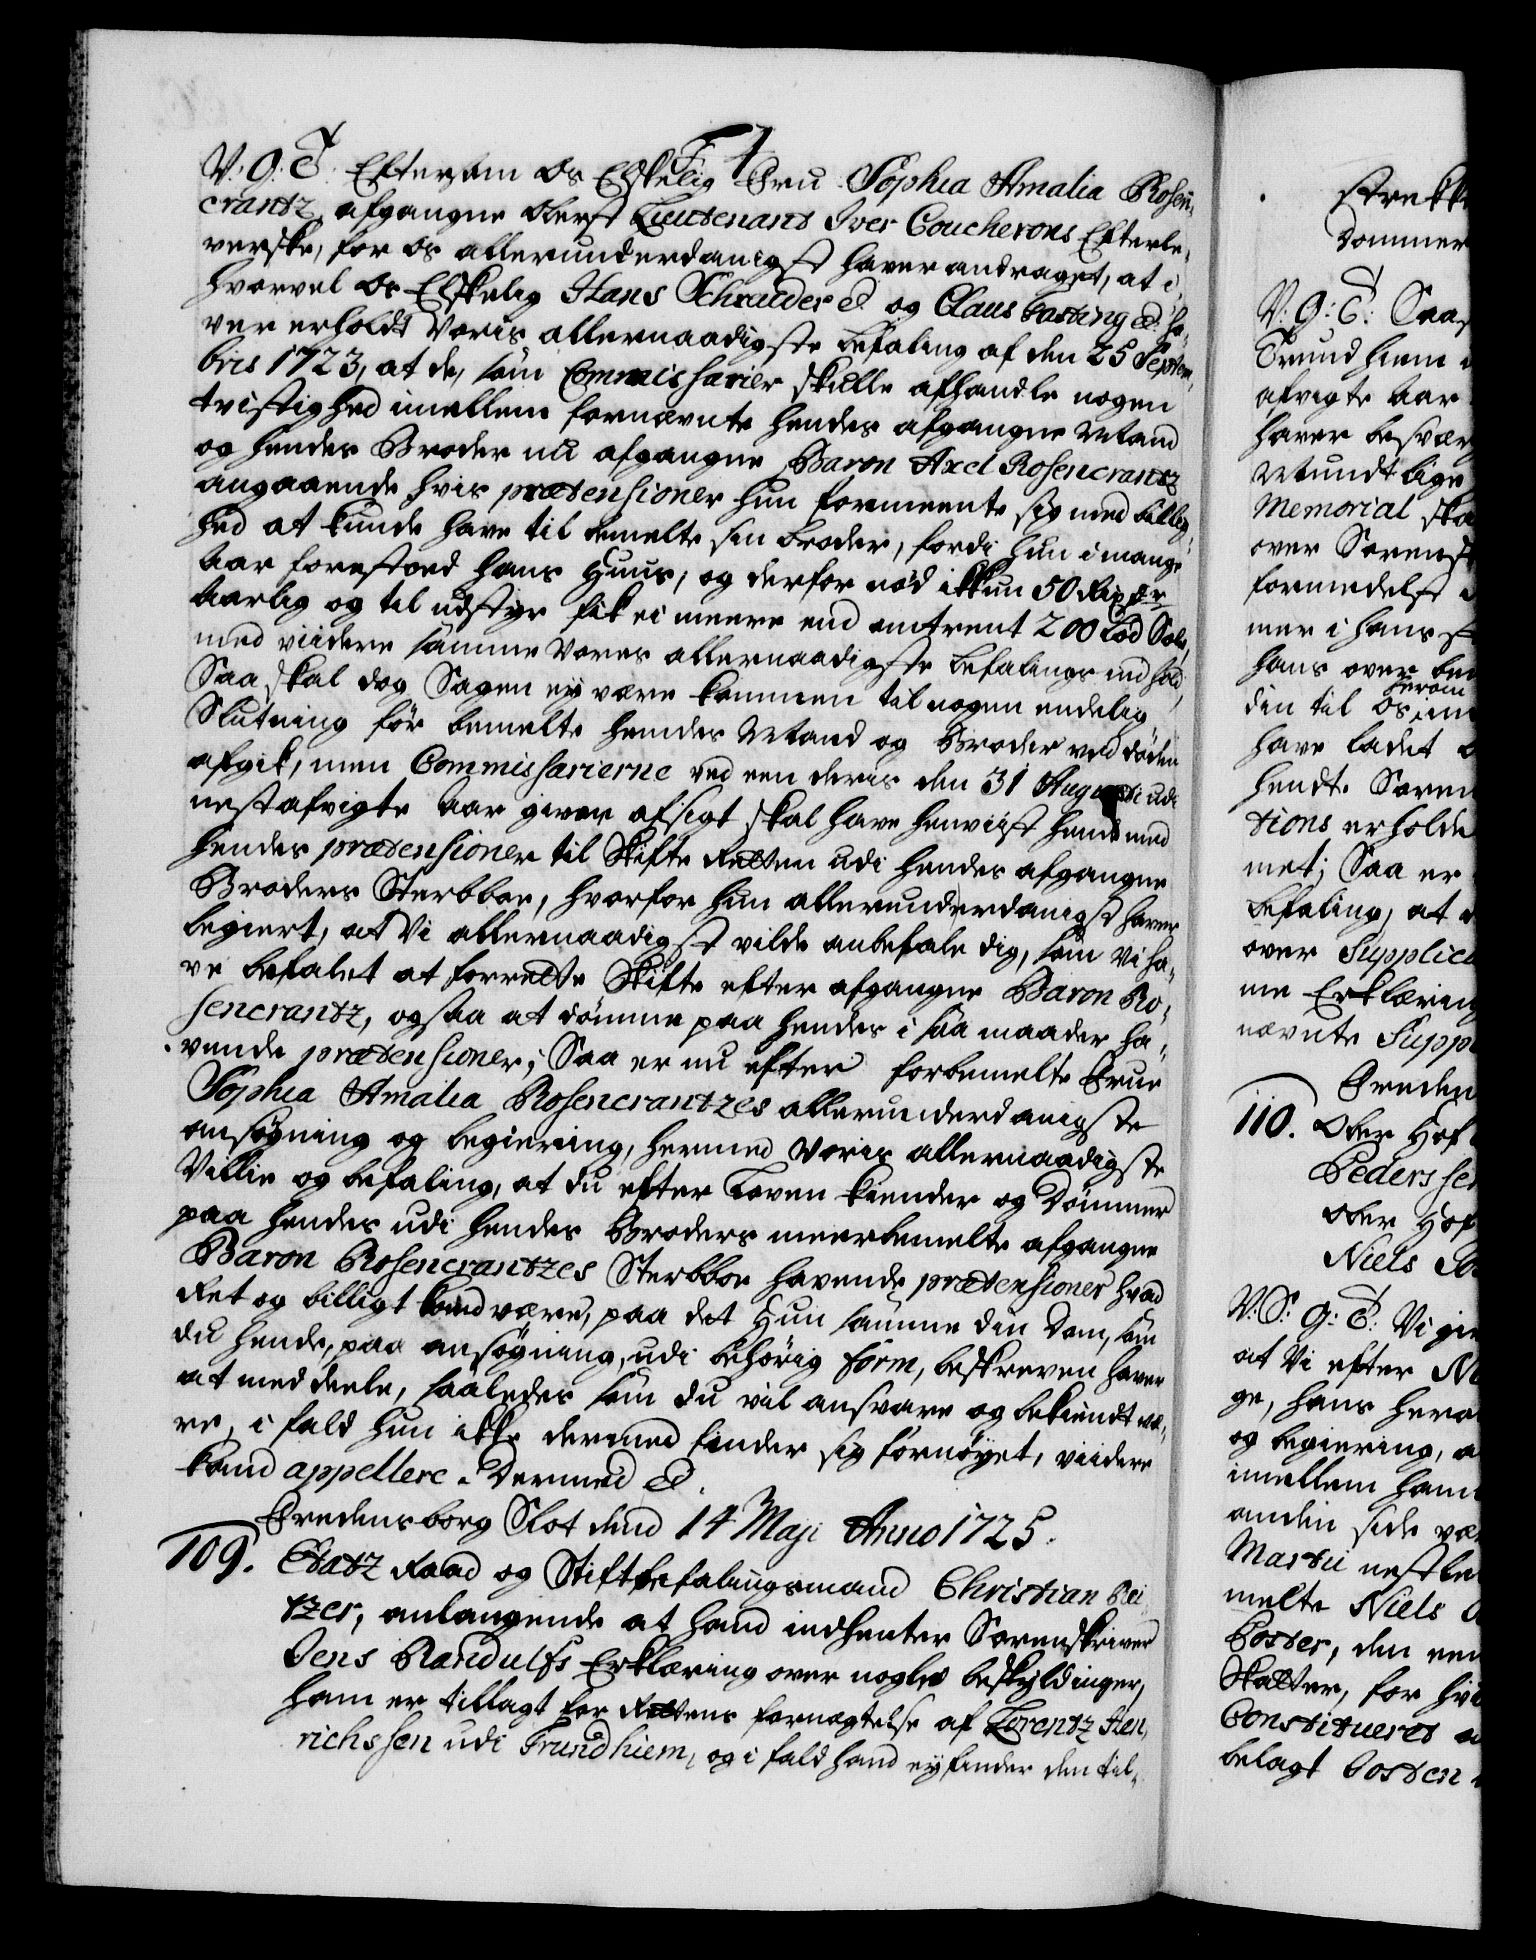 F 4
V: G: T: Eftersom Os Elskelig Frue Sophia Amalia Rosen-
crantz, afgangne Oberst Lieutenant Iver Coucherons Efterle-
verske, for Os allerunderdanigst haver andraget, at i
hvorvel Os Elskelig Hans Schrøder &c og Claus Fasting &c ha-
ver erholdt Voris allernaadigste befaling af den 25 Septem-
bris 1723, at de, som Commissarier skulle afhandle nogen
tvistighed imellem fornævnte hendes afgangne Mand
og hendes Broder nu afgangne Baron Axel Rosencrantz
angaaende hvis prætensioner hun formeente sig med billig-
hed at kunde have til bemelte sin broder, fordi hun i mange
Aar forestoed hans Huus, og derfor nød ikkun 50 Rixdr
Aarlig og til udstyr fik ei meere end omtrent 200 Lod Sølv,
med viidere samme Vores allernaadigste befalings indhold,
Saa skal dog Sagen ey være kommen til nogen endelig
Slutning før bemelte hendes Mand og Broder ved døden
afgik, men Commissarierne ved een deris den 31 Augusti udi
nestafvigte Aar given afsigt skal have henviist hende med
hendes prætensioner til Skifte Retten udi hendes afgangne
Broders Sterbboe, hvorfor hun allerunderdanigst haver
begiert, at Vi allernaadigst vilde anbefale dig, som Vi ha-
ve befalet at forrette Skifte efter afgangne Baron Ro-
sencrantz, ogsaa at dømme paa hendes i saa maader ha-
vende prætensioner; Saa er nu efter forbemelte Frue
Sophia Amalia Rosencrantzes allerunderdanigste
ansøgning og begiering, hermed Voris allernaadigste
Villie og befaling, at du efter Loven kiender og Dømmer
paa hendes udi hendes Broders meerbemelte afgangne
Baron Rosencrantzes Sterbboe havende prætensioner hvad
Ret og billigt kand være, paa det Hun samme din Dom, som
du hende, paa ansøgning, udi behørig form, beskreven haver
at meddeele, saaledes som du vil ansvare og bekiendt væ-
re, i fald hun ikke dermed finder sig fornøyet, viidere
kand appellere. Dermed &c.
Fredensborg Slot dend 14 Maji Anno 1725.
109. Etatz Raad og Stiftbefalingsmand Christian Rei-
tzer, anlangende at hand indhenter Sorenskriver
Jens Randulfs Erklæring over nogle beskyldinger,
ham er tillagt for Rettens fornægtelse af Lorentz Hen-
richssen udi Trundhiem, og i fald hand ey finder den til-
strekke
dommer
V: G: T: Saas
Trundhiem
afvigte Aar
haver besvær
Mundtlige
Memorial ska
over Sorensk
formedelst
mer i hans
hans over
din til Os
herom
have ladet
hendt. Soren
tions erholde
met; Saa er
befaling, at
over Supplic
me Erklæring
nævnte Suppl
Freden
110. Ober Hof
Peders sen
Ober Hof
Niels
V: S: G: T: Vi gi
at Vi efter
ge, hans hero
og begiering, a
imellem ham
anden side væ
Martii nestle
melte Niels
Poster, den een
Skatter, for hvi
Constitueret
belagt Posten